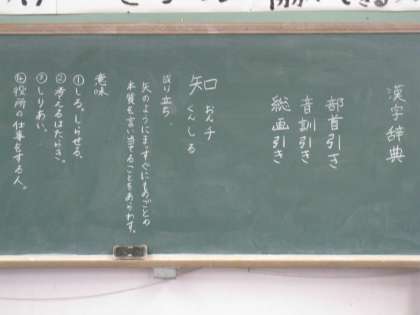 漢字辞典
部首引き
音訓引き
総画引き
知 おん チ
くん しる
成り立ち
矢のようにまっすぐにものごとの
本質を言い当てることをあらわす。
意味
①しる。しらせる。
②考えるはたらき。
③しりあい。
④役所の仕事をする人。